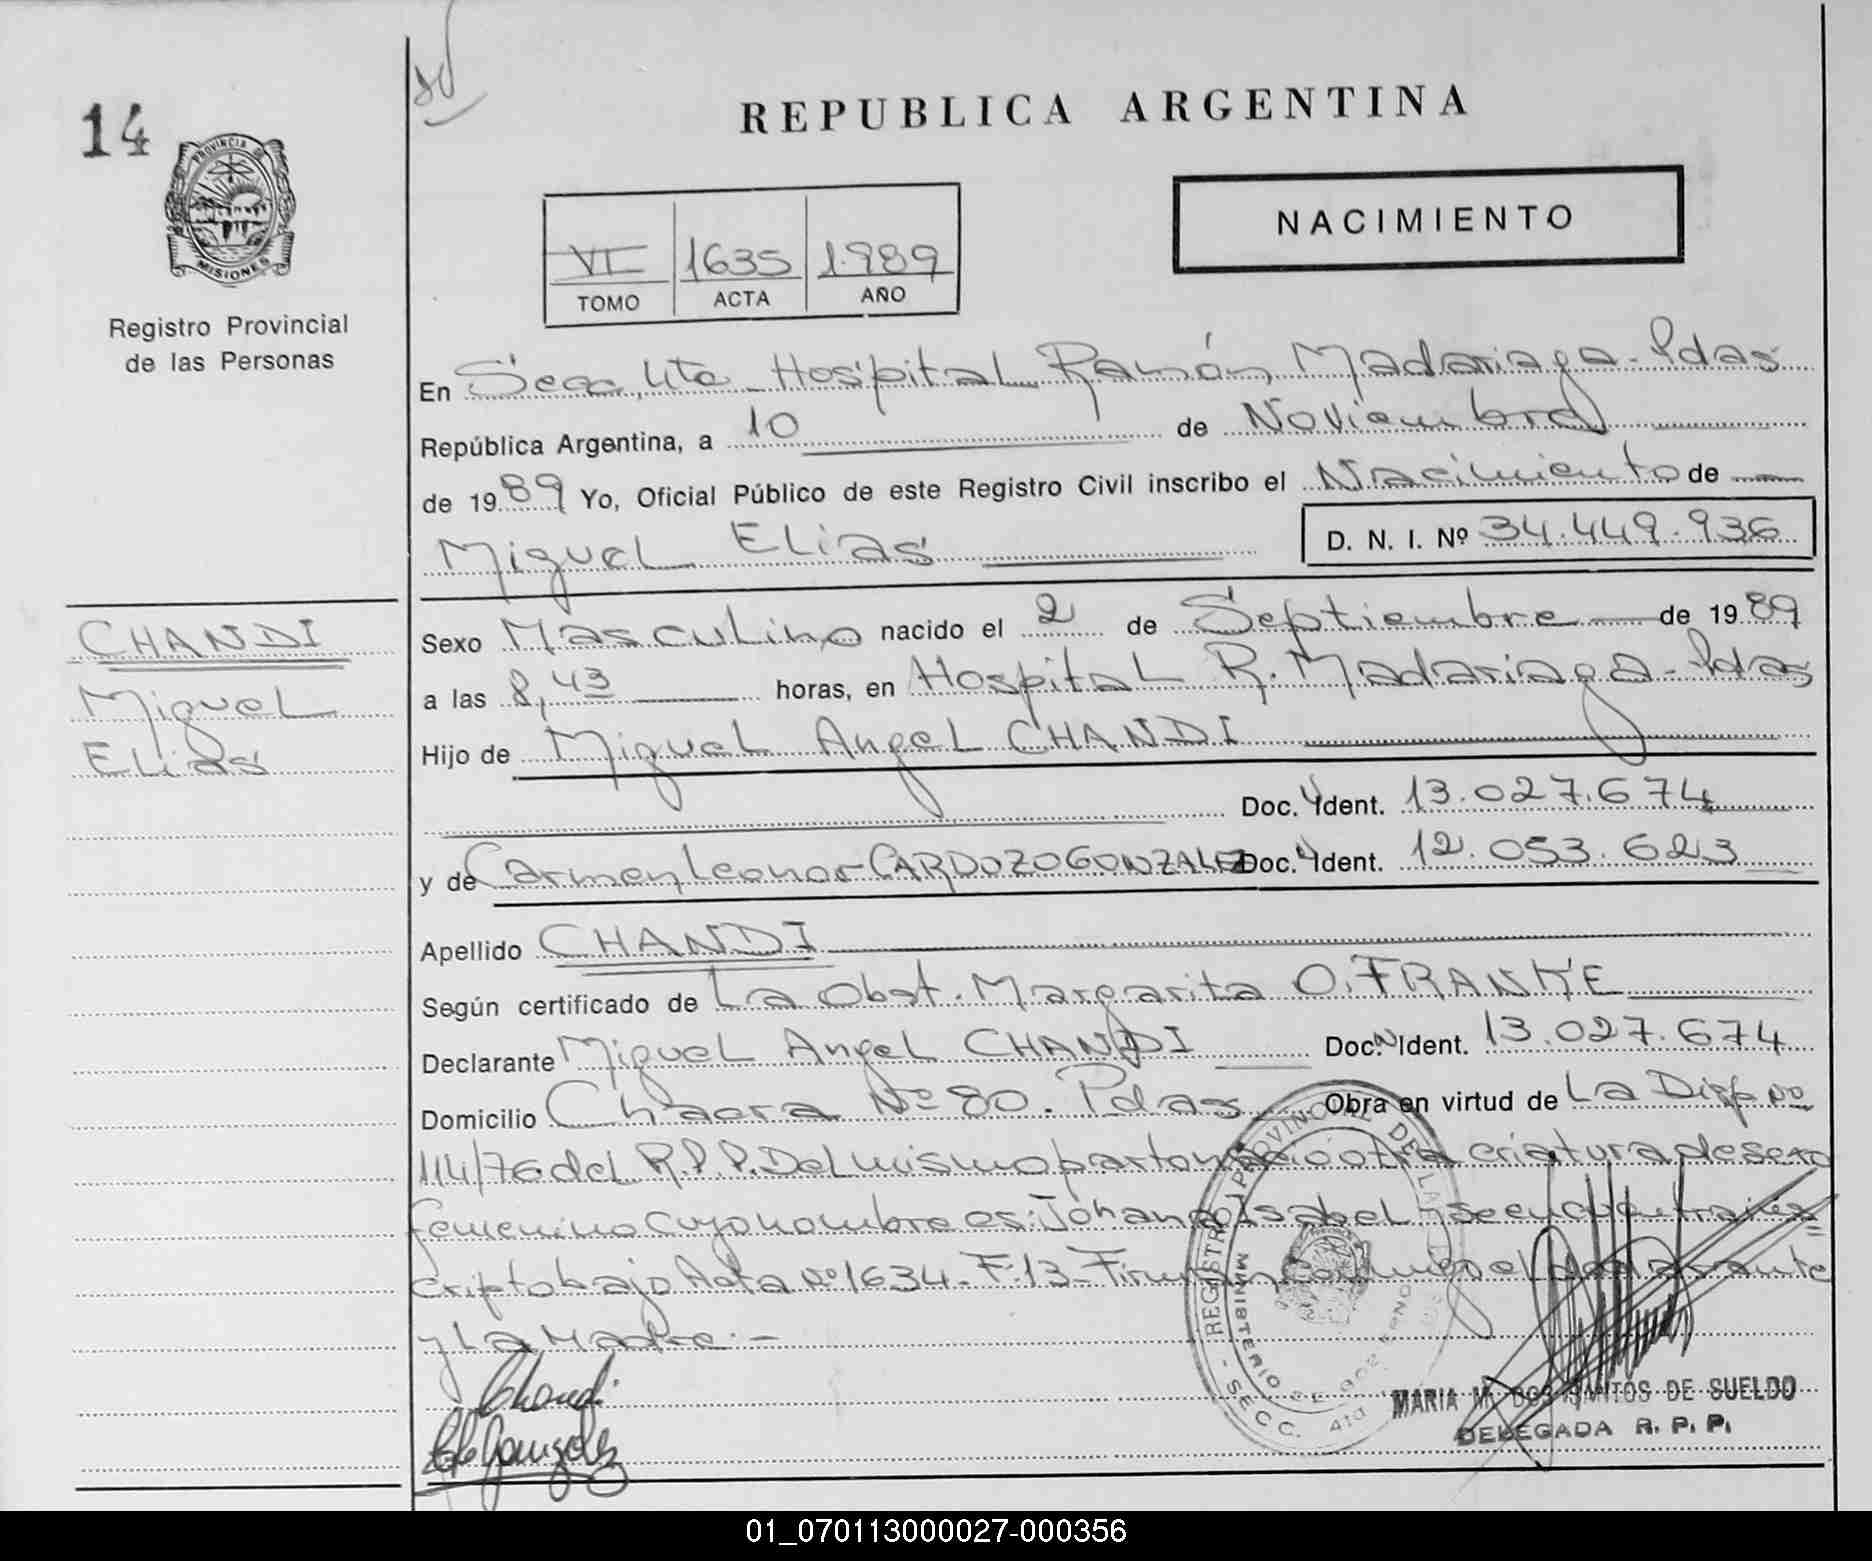 14
PROVINCIA DE
MISIONES
Registro Provincial
de las Personas
REPUBLICA ARGENTINA
NACIMIENTO
VI 1635 1989
TOMO ACTA AÑO
En Secc. 4ta - Hospital Ramón Madariaga - Pdas
República Argentina, a 10 de Noviembre
de 1989 Yo, Oficial Público de este Registro Civil inscribo el Nacimiento de
Miguel Elias D. N. I. Nº 34.449.936
CHANDI
Miguel
Elias
Sexo Masculino nacido el 2 de Septiembre de 1989
a las 8,43 horas, en Hospital R. Madariaga - Pdas
Hijo de Miguel Angel CHANDI
Doc. Ident. 13.027.674
y de Carmen Leonor CARDOZO GONZALEZ Doc. Ident. 12.053.623
Apellido CHANDI
Según certificado de La Obst. Margarita O. FRANKE
Declarante Miguel Angel CHANDI Doc. N Ident. 13.027.674
Domicilio Chacra Nº 80. Pdas Obra en virtud de La Disp Nº
114/76 del R.P.P. Del mismo parto nació otra criatura de sexo
femenino cuyo nombre es: Johana Isabel y se encuentra ins=
cripto bajo Acta Nº 1634 - F: 13 - Firman conmigo el declarante
y La Madre. -
Chandi
Gonzalez
REGISTRO PROVINCIAL DE LAS
MINISTERIO DE GOBIERNO
SECC. 4ta
MARIA M. DOS SANTOS DE SUELDO
DELEGADA R. P. P.
01_070113000027-000356